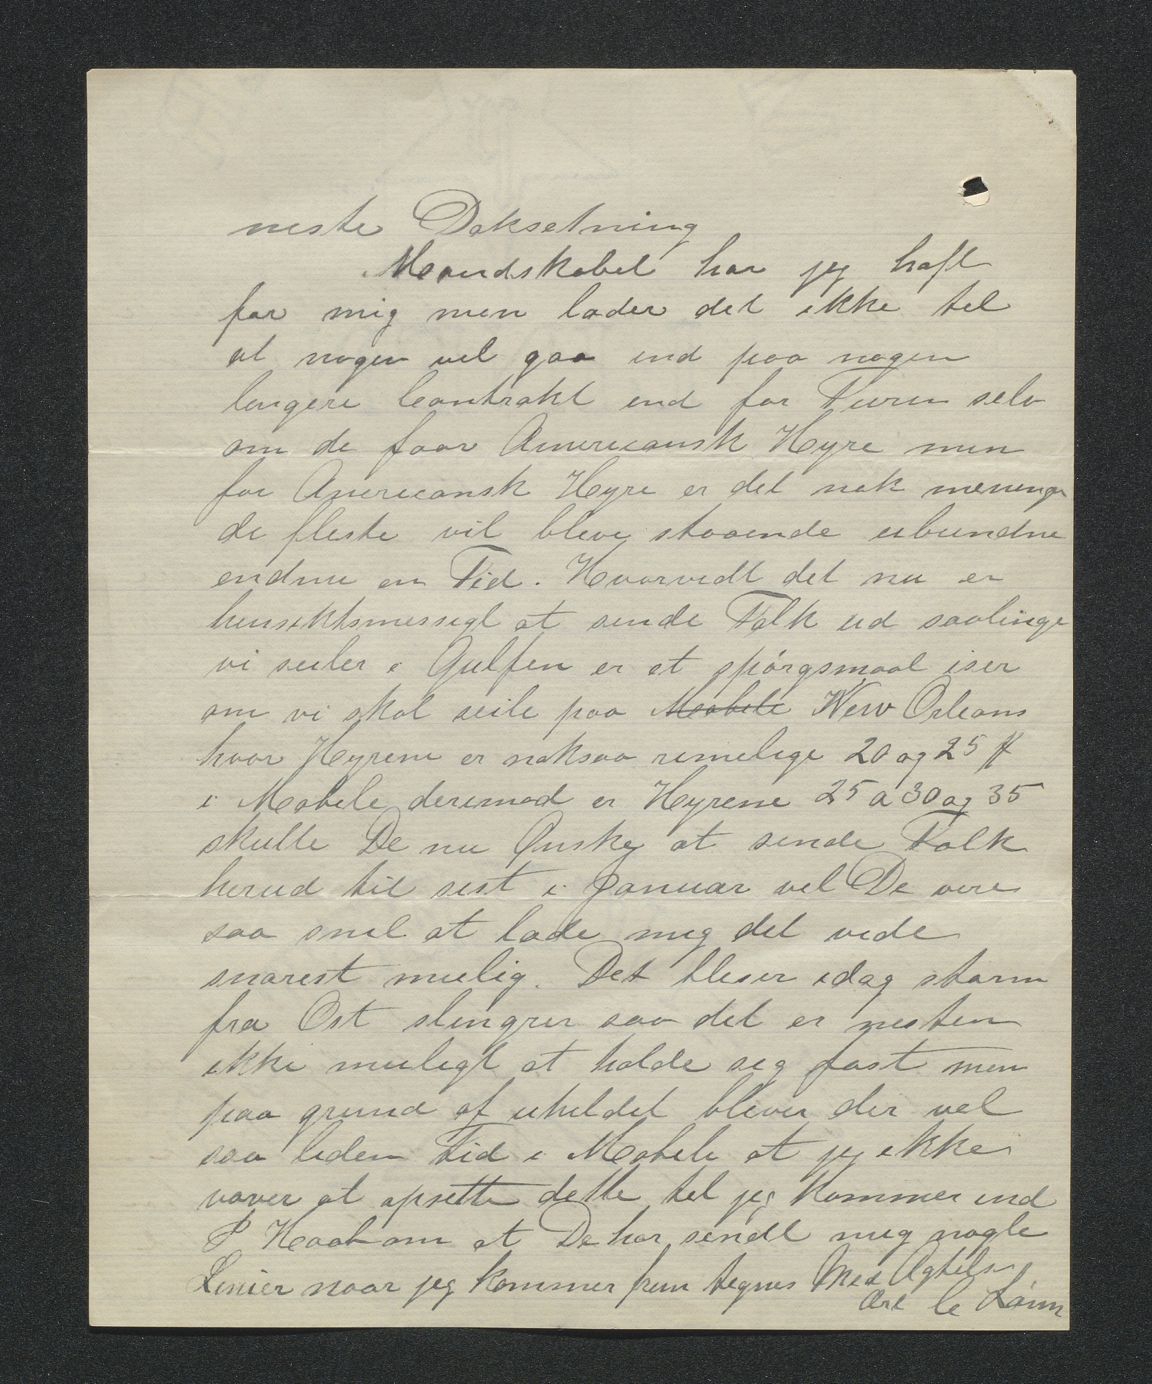 neste Doksetning
Mandskabet har jeg haft
for mig men lader det ikke til
at nogen vil gaa ind paa nogen
længere Contrakt end for Turen selv
om de faar Americansk Hyre men
for Americansk Hyre er det nok meninge
de fleste vil blive staaende ubundne
endnu en Tid. Hvorvidt det nu er
hensiktsmessigt at sende Folk ud saalinge
vi seiler i Gulfen er et spórgsmaal iser
om vi skal seile paa Mobile New Orleans
hvor Hyrene er noksaa rimelige 20 og 25 $
i Mobile derimod er Hyrene 25 a 30 og 35
skulle De nu Ønske at sende Folk
herud til sist i Januar vil De vere
saa snil at lade mig det vide
snarest muelig. Det bleser idag storm
fra Ost slingrer saa det er nesten
ikke mueligt at holde sig fast men
paa grund af uheldet bliver der vel
saa liden Tid i Mobile at jeg ikke
vover at opsette dette til jeg kommer ind
I Haab om at De har sendt mig nogle
Linier naar jeg kommer frem tegnes Med Agtelse